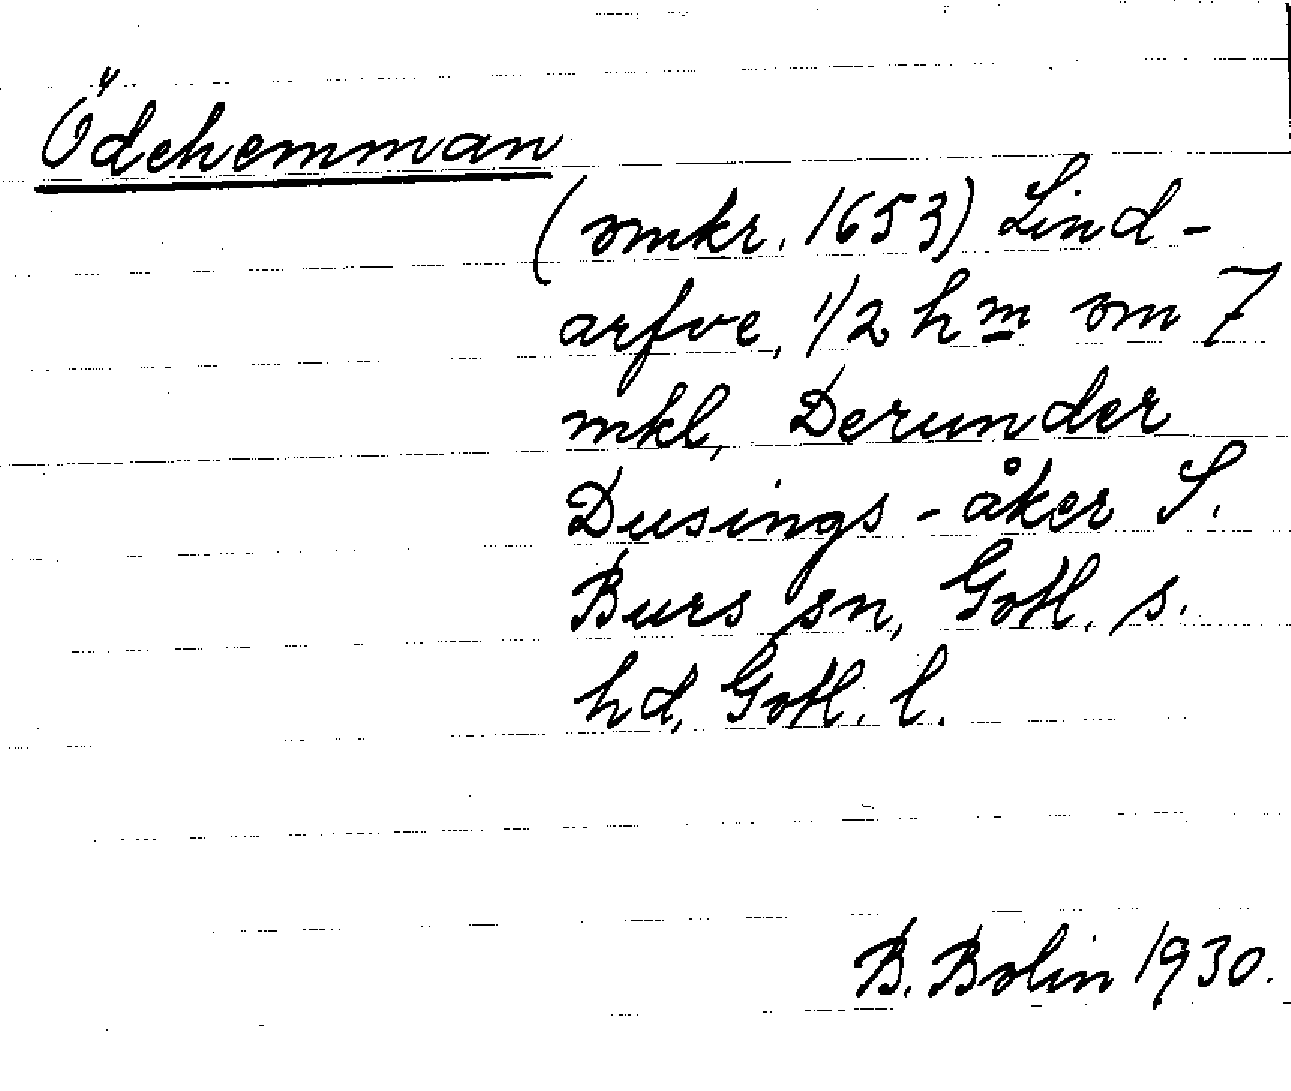 Ödehemman
(omkr. 1653) Lind-
arfve, 1/2 hm om 7
mkl, Derunder
Dusings-åker S.
Burs sn, Gotl. s.
hd, Gotl. l.
B. Bolin 1930.